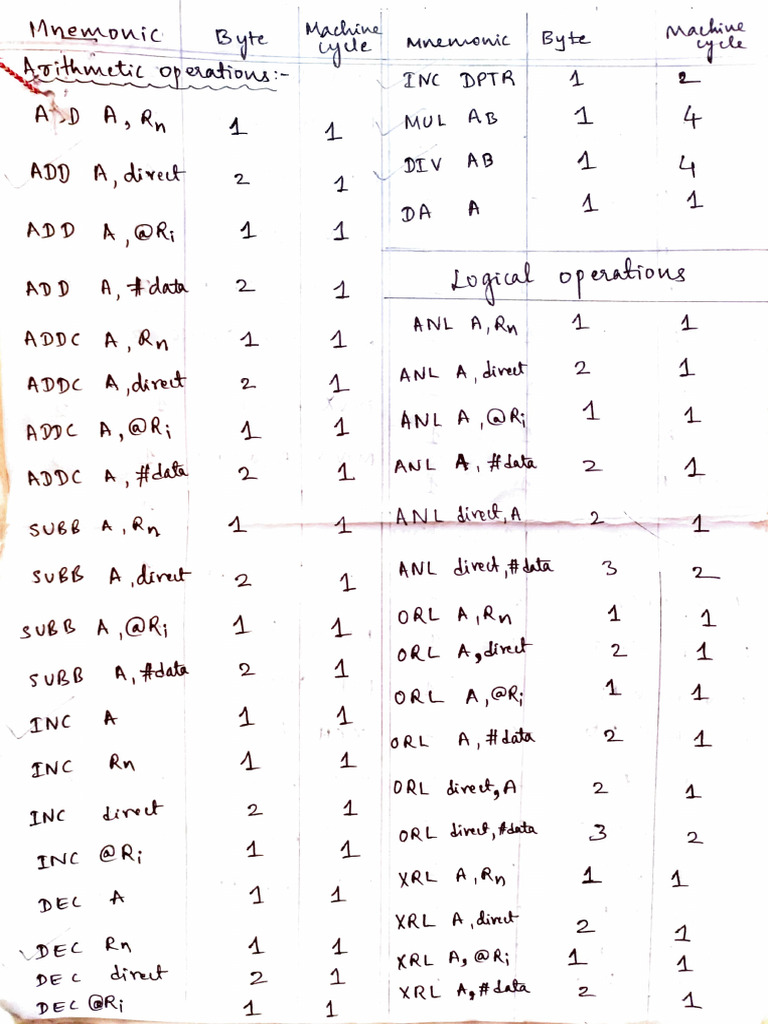 Mnemonic Byte Machine cycle
Arithmetic operations:-
ADD A, Rn 1 1
ADD A, direct 2 1
ADD A, @Ri 1 1
ADD A, #data 2 1
ADDC A, Rn 1 1
ADDC A, direct 2 1
ADDC A, @Ri 1 1
ADDC A, #data 2 1
SUBB A, Rn 1 1
SUBB A, direct 2 1
SUBB A, @Ri 1 1
SUBB A, #data 2 1
INC A 1 1
INC Rn 1 1
INC direct 2 1
INC @Ri 1 1
DEC A 1 1
DEC Rn 1 1
DEC direct 2 1
DEC @Ri 1 1
Mnemonic Byte Machine cycle
INC DPTR 1 2
MUL AB 1 4
DIV AB 1 4
DA A 1 1
Logical operations
ANL A, Rn 1 1
ANL A, direct 2 1
ANL A, @Ri 1 1
ANL A, #data 2 1
ANL direct, A 2 1
ANL direct, #data 3 2
ORL A, Rn 1 1
ORL A, direct 2 1
ORL A, @Ri 1 1
ORL A, #data 2 1
ORL direct, A 2 1
ORL direct, #data 3 2
XRL A, Rn 1 1
XRL A, direct 2 1
XRL A, @Ri 1 1
XRL A, #data 2 1